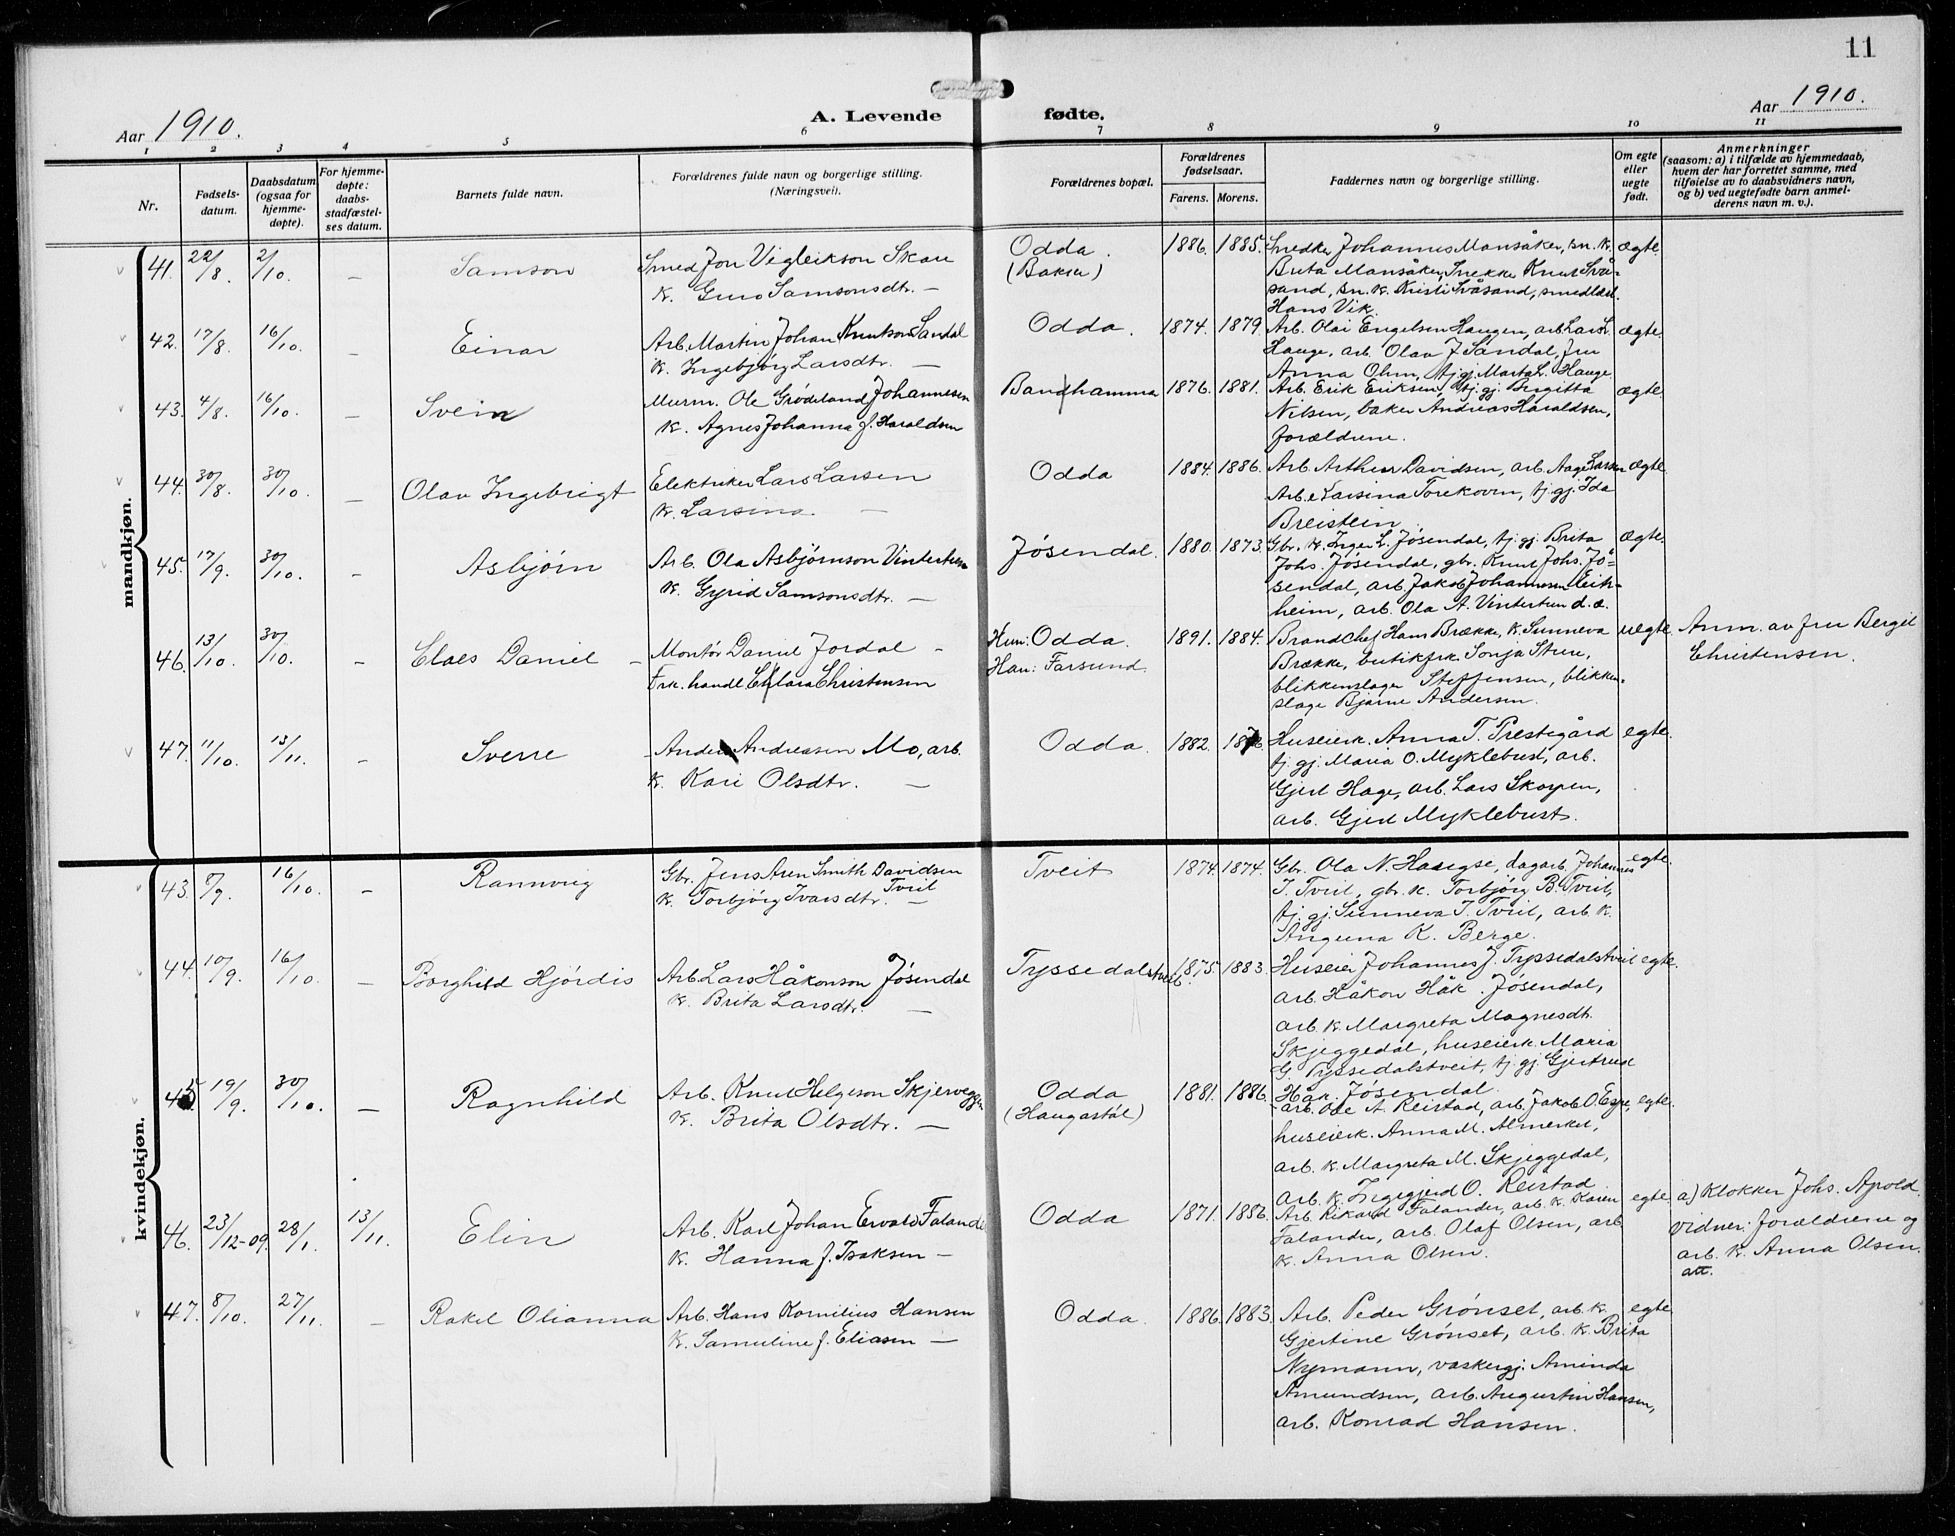 11
Aar 1910.
A. Levende fødte.
Aar 1910.
1 2 3 4 5 6 7 8 9 10 11
Nr.
Fødsels-
datum.
Daabsdatum
(ogsaa for
hjemme-
døpte).
For hjemme-
døpte:
daabs-
stadfæstel-
ses datum.
Barnets fulde navn.
Forældrenes fulde navn og borgerlige stilling.
(Næringsvei).
Forældrenes bopæl.
Forældrenes
fødselsaar.
Farens. Morens.
Faddernes navn og borgerlige stilling.
Om egte
eller
uegte
født.
Anmerkninger
(saasom: a) i tilfælde av hjemmedaab,
hvem der har forrettet samme, med
tilføielse av to daabsvidners navn,
og b) ved uegtefødte barn anmel-
derens navn m. v.).
mandkjøn.
41. 22/8 2/10. – Samson
Smed Jon Vigleikson Skare
K. Guro Samsonsdtr. –
Odda.
(Bakke)
1886. 1885.
Smedk. Johannes Mansåker, sn. k.
Brita Mansåker, Snekker Knut Svå-
sand, sn. k. Kristi Svåsand, smedlærl.
Hans Vik.
ægte.
42. 17/8 16/10. – Einar
Arb. Martin Johan Knutson Sandal
K. Ingebjørg Larsdtr. –
Odda.
1874. 1879.
Arb. Olai Engelsen Haugen, arb. Lars L.
Hauge, arb. Olav J. Sandal, fru
Anna Ohm, tj. gj. Marta L. Hauge
ægte.
43. 4/8. 16/10. – Svein
Murm. Ole Grødeland Johannesen
K. Agnes Johanna f. Haraldsen
Bandhamma
1876. 1881.
Arb. Erik Eriksen, tj. gj. Birgitta
Nilsen, baker Andreas Haraldsen,
forældrene.
ægte
44. 30/8. 30/10. – Olav Ingebrigt
Elektriker Lars Larsen
K. Larsina –
Odda
1884. 1886.
Arb. Arthur Davidsen, arb. Aage Larsen
Arb. e Larsina Torekovn, tj. gj. Ida
Breistein
ægte.
45. 17/9. 30/10. – Asbjørn
Arb. Ola Asbjørnson Vintertun
K. Gyrid Samsonsdtr. –
Jøsendal.
1880. 1873.
Gbr. k. Inger L. Jøsendal, tj. gj. Brita
Johs. Jøsendal, gbr. Knut Johs. Jø-
sendal, arb. Jakob Johannesen Eit-
heim, arb. Ola A. Vintertun d. æ.
ægte.
46. 13/10. 30/10. – Claes Daniel –
Montør Daniel Jordal –
Frk. handl. Clara Christensen
Hun: Odda.
Han: Farsund.
1891. 1884.
Brandchef Hans Brække, K. Sunneva
Brække, butikfrk. Sonja Sture,
blikkenslager Steffensen, blikken-
slage Bjarne Andersen.
uegte.
Anm. av fru Bergit
Christensen.
47. 11/10. 13/11. – Sverre
Anders Andreasen Mo, arb.
K. Kari Olsdtr. –
Odda.
1882.
Huseierk. Anna T. Prestegård
tj. gj. Maria O. Myklebust, arb.
Gjert Hage, arb. Lars Skorpen,
arb. Gjert Myklebust.
egte.
kvindekjøn.
43. 7/9. 16/10. – Rannveig
Gbr. Jens Aren Smith Davidsen
Tveit
K. Torbjørg Ivarsdtr. –
Tveit
1874. 1874.
Gbr. Ola N. Haugse, dagarb. Johannes
I. Tveit, gbr. k. Torbjørg B. Tveit,
tj. gj. Sunneva I. Tveit, arb. k.
Anguna K. Berge.
egte.
44. 10/9. 16/10. – Borghild Hjørdis
Arb. Lars Håkonson Jøsendal
K. Brita Larsdtr. –
Tyssedalstveit.
1875. 1883.
Huseier Johannes J. Tyssedalstveit
arb. Håkon Håk. Jøsendal,
arb. k. Margreta Magnesdt.
Skjeggedal, huseierk. Maria
G. Tyssedalstveit, tj. gj. Gjertrud
Håk. Jøsendal.
egte.
45 19/9. 30/10. – Ragnhild
Arb. Knut Helgeson Skjerveggen
K. Brita Olsdtr. –
Odda
(Haugastøl)
1881. 1886.
arb. Ole A. Reistad, arb. Jakob O. Espe,
huseierk. Anna M. Almerket,
arb. k. Margreta M. Skjeggedal,
arb. k. Ingegjerd O. Reistad
egte.
46. 23/12-09. 28/1. 13/11. Elin
Arb. Karl Johan Ervald Falander
K. Hanna f. Isaksen –
Odda
1871. 1886.
Arb. Rikard Falander, arb. k. Karen
Falander, arb. Olaf Olsen, arb.
k. Anna Olsen.
egte
a) Klokker Johs. Apold.
Vidner: forældrene og
arb. k. Anna Olsen.
att.
47. 8/10. 27/11. – Rakel Olianna
Arb. Hans Kornelius Hansen
K. Samueline f. Eliasen –
Odda.
1886. 1883.
Arb. Peder Grønset, arb. k.
Gjertine Grønset, arb. k. Brita
Nymann, vaskergj. Aminda
Amundsen, arb. Augustin Hansen,
arb. Konrad Hansen.
egte